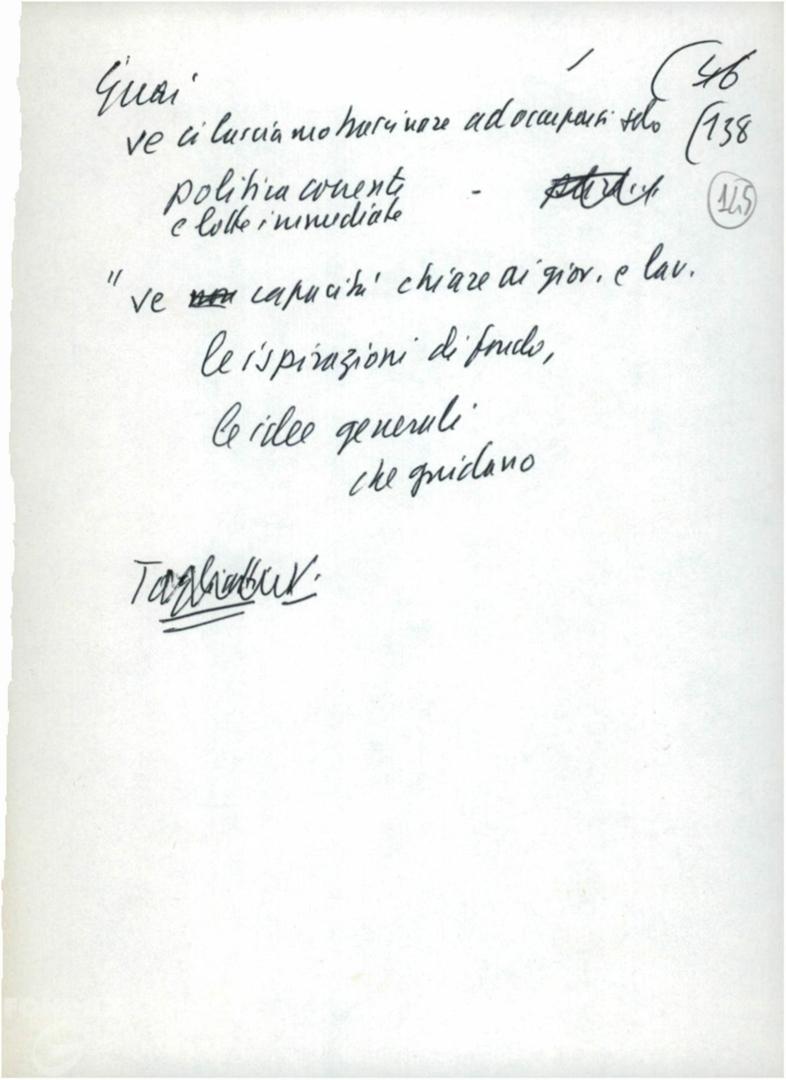 (46
Guai
se ci lasciamo trascinare ad occuparsi solo (138
politica corrente -
e lotte immediate 145
" se capacità chiare ai giov. e lav.
le ispirazioni di fondo,
le idee generali
che guidano